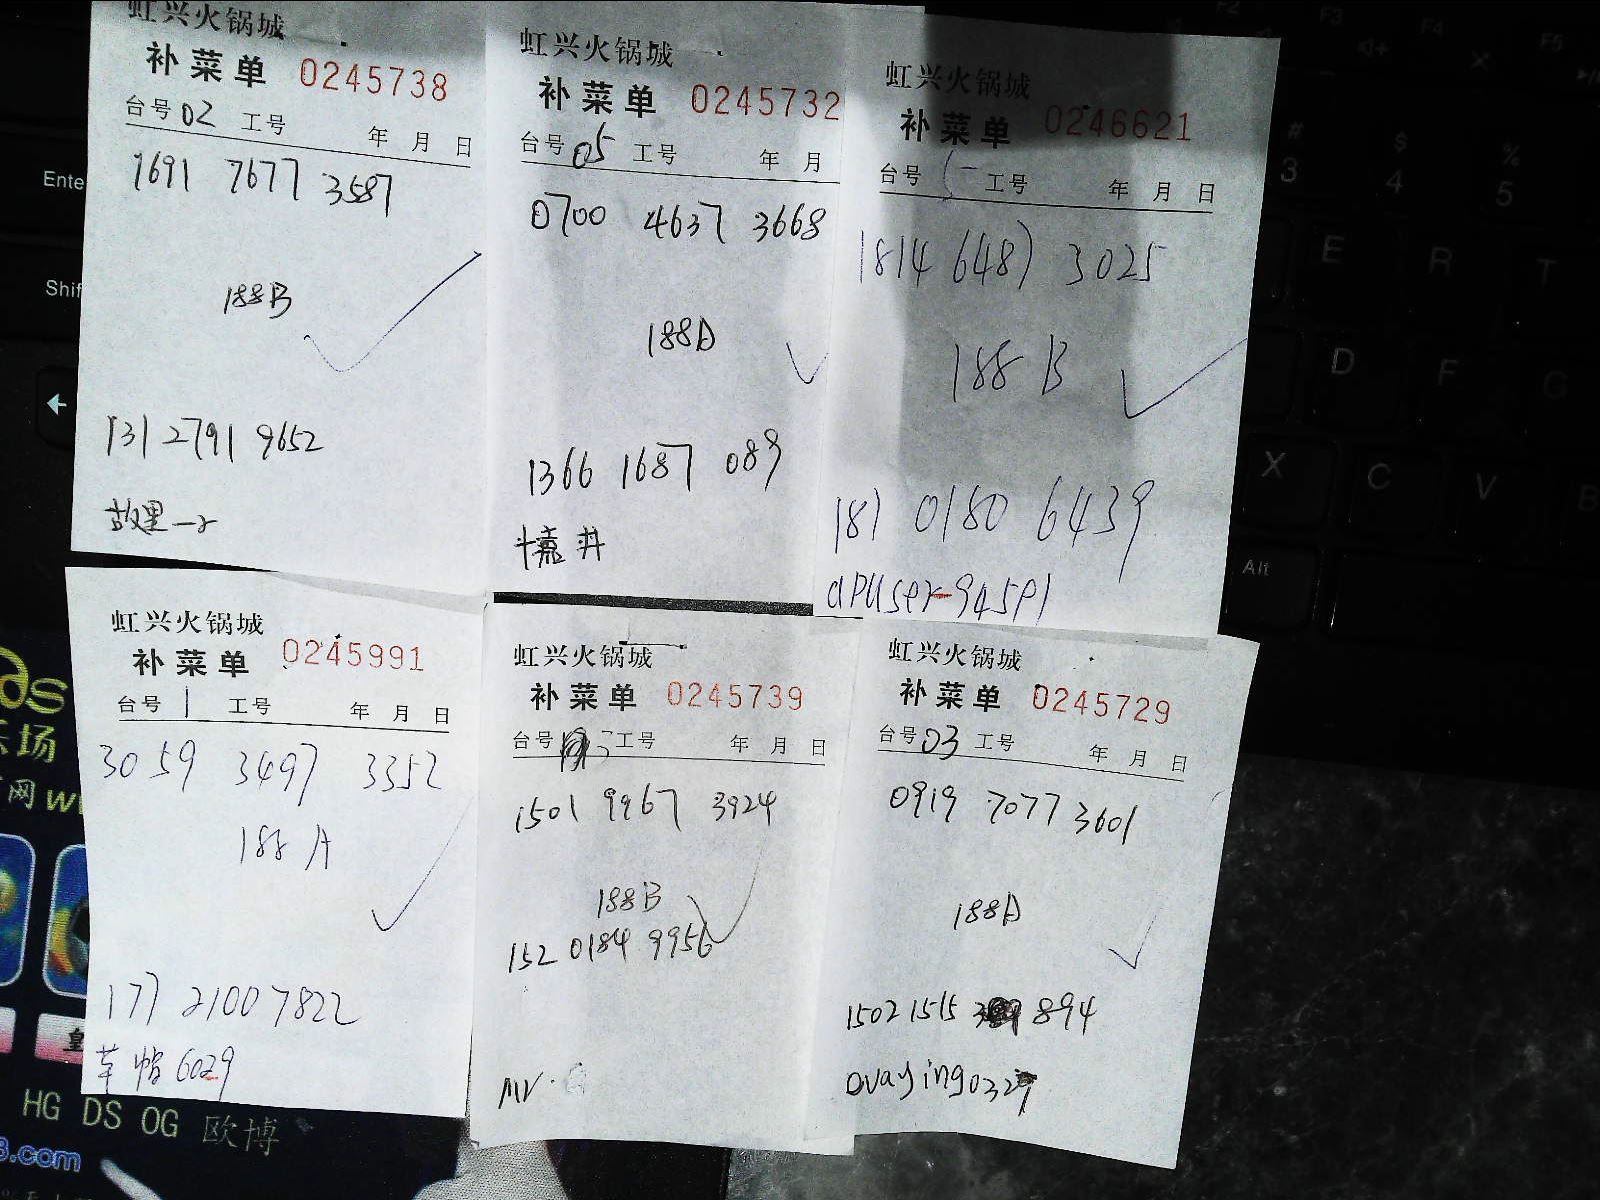 虹兴火锅城
补菜单 0245738
台号 02 工号 年 月 日
1691 7677 3587
188B
131 2791 9652
故里一
虹兴火锅城
补菜单 0245732
台号 05 工号 年 月
0700 4637 3668
188A
1366 1687 089
虹兴火锅城
补菜单 0246621
台号 工号 年 月 日
1814 6487 3025
188 B
181 0180 6439
apuser-945p1
虹兴火锅城
补菜单 0245991
台号 1 工号 年 月 日
3059 3497 3352
188 A
177 2100 7822
6029
虹兴火锅城
补菜单 0245739
台号 工号 年 月 日
1501 9967 3924
188B
152 0184 9956
Mr.
虹兴火锅城
补菜单 0245729
台号 03 工号 年 月 日
0919 7077 3601
188A
1502 1515 894
ovaying0329
Enter
Shift
F2
F3
F4
F5
#
3
$
4
%
5
E
R
T
D
F
G
X
C
V
B
Alt
ds
乐场
网 w
皇
HG DS OG 欧博
8.com